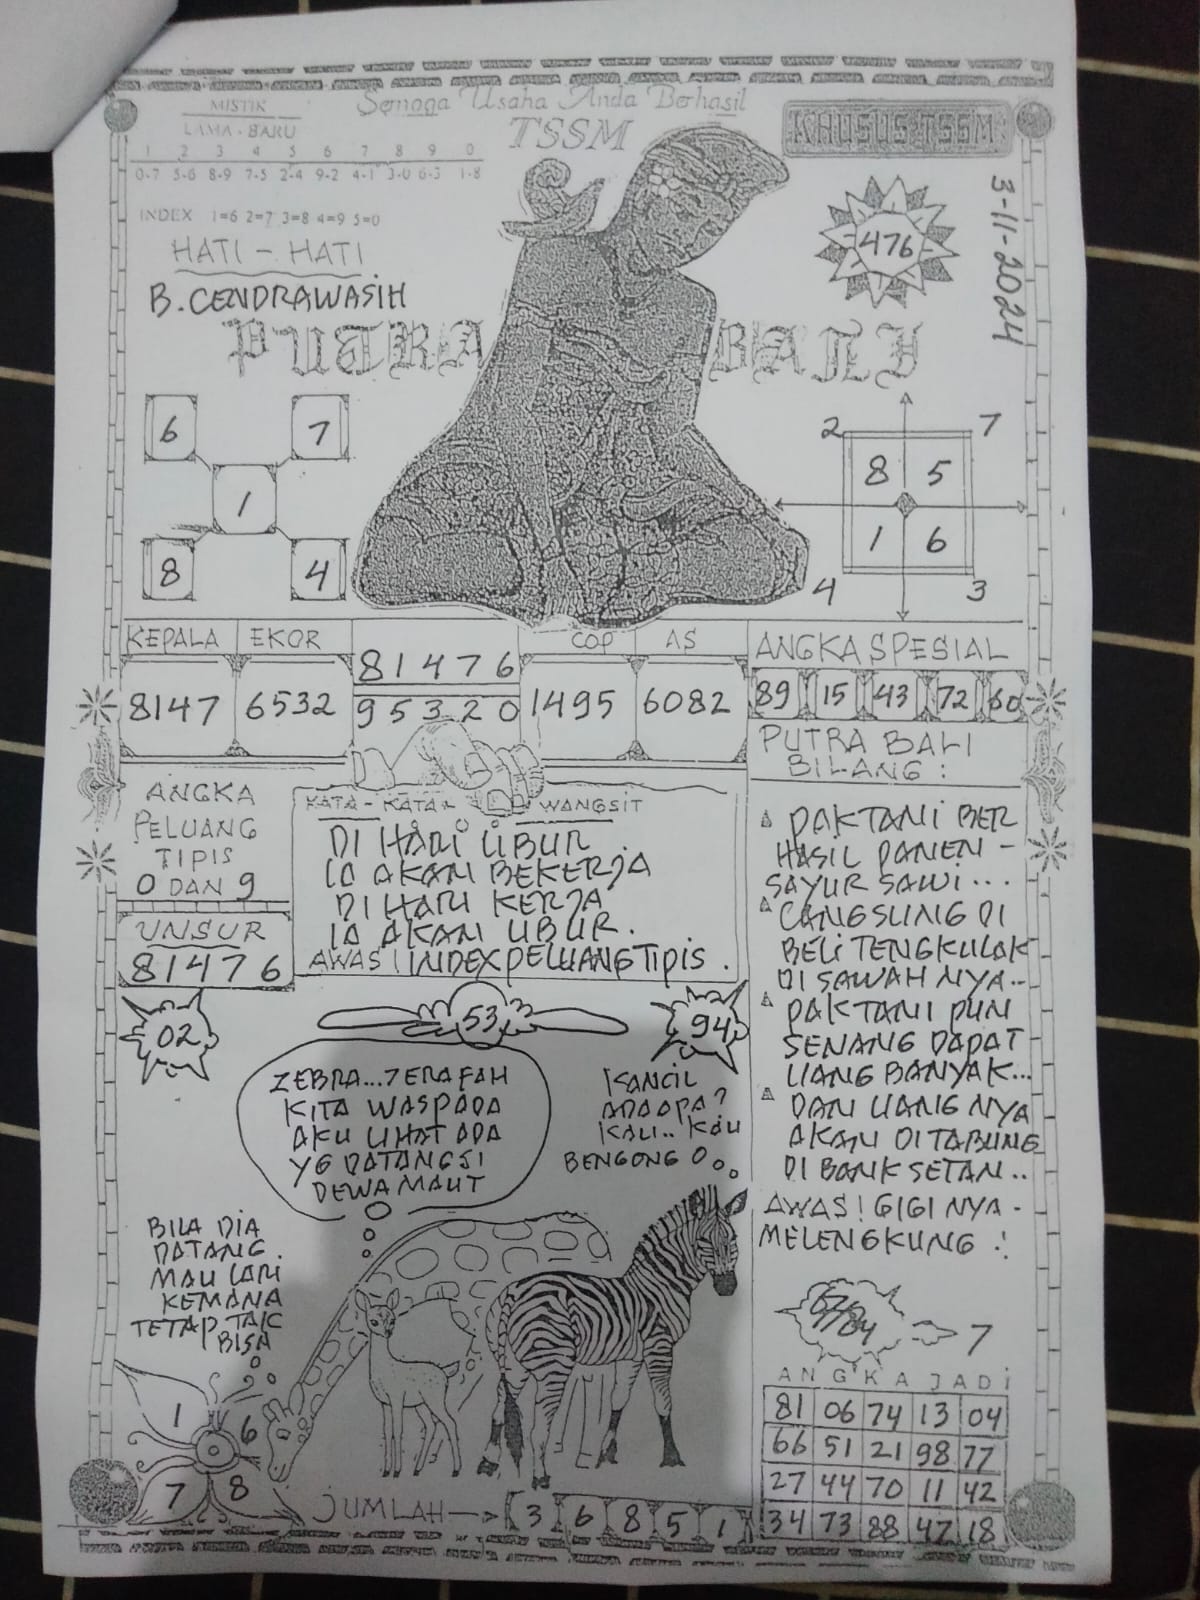 Semoga Usaha Anda Berhasil
TSSM
KHUSUS TSSM
MISTIK
LAMA - BARU
1 2 3 4 5 6 7 8 9 0
0-7 5-6 8-9 7-5 2-4 9-2 4-1 3-0 6-3 1-8
INDEX 1=6 2=7 3=8 4=9 5=0
HATI - HATI
B. CENDRAWASIH
476
3-11-2024
PUTRA BALI
6 7
1
8 4
2 7
8 5
1 6
4 3
KEPALA EKOR
8147 6532
81476
95320
COP AS
1495 6082
ANGKA SPESIAL
89 15 43 72 60
ANGKA
PELUANG
TIPIS
0 DAN 9
UNSUR
81476
KATA - KATA WANGSIT
DI HARI LIBUR
IA AKAN BEKERJA
DI HARI KERJA
IA AKAN LIBUR.
AWAS! INDEX PELUANG TIPIS.
PUTRA BALI
BILANG :
PAKTANI BER
HASIL PANEN -
SAYUR SAWI...
LANGSUNG DI
BELI TENGKULAK
DI SAWAH NYA..
PAKTANI PUN
SENANG DAPAT
UANG BANYAK...
DAN UANG NYA
AKAN DITABUNG
DI BANK SETAN..
AWAS! GIGI NYA -
MELENGKUNG :!
02
53
94
ZEBRA...JERAFAH
KITA WASPADA
AKU LIHAT ADA
YG DATANG SI
DEWA MAUT
KANCIL
ADA APA?
KAU.. KAU
BENGONG
BILA DIA
DATANG.
MAU LARI
KEMANA
TETAP TAK
BISA
1 6
7 8
JUMLAH
3 6 8 5 1
7
ANGKA JADI
81 06 74 13 04
66 51 21 98 77
27 44 70 11 42
34 73 88 47 18